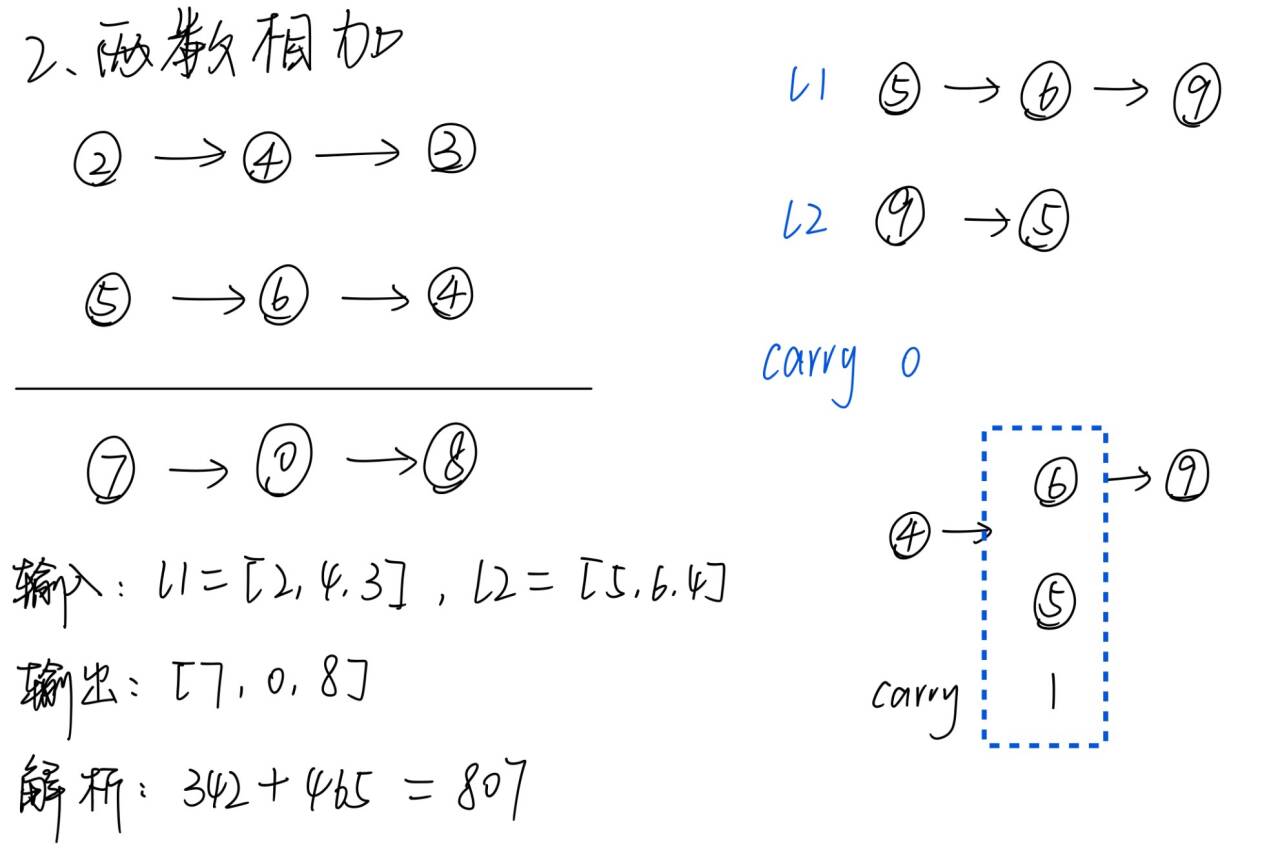 2、两数相加
2 → 4 → 3
5 → 6 → 4
7 → 0 → 8
输入: l1 = [2,4,3], l2 = [5,6,4]
输出: [7,0,8]
解析: 342 + 465 = 807
l1 5 → 6 → 9
l2 9 → 5
carry 0
6 → 9
4 →
5
carry 1